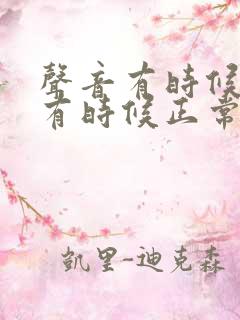 聲音有時候
有時候正常
凱里-迪克森